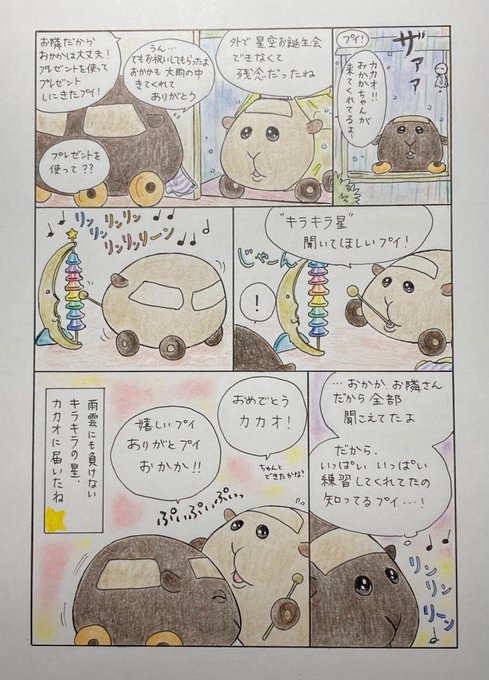 ザァァ
プイ!
カカオ!!
おかかちゃんが
来てくれてるよ!
外で星空お誕生会
できなくて
残念だったね
うん…
でもお祝いしてもらったよ
おかかも大雨の中
きてくれて
ありがとう
お隣だから
おかかは大丈夫!
プレゼントを使って
プレゼント
しにきたプイ!
プレゼントを
使って??
"キラキラ星"
聞いてほしいプイ!
じゃーん
!
リンリンリン
リンリンリン
リンリンリーン
…おかか、お隣さん
だから全部
聞こえてたよ
だから、
いっぱいいっぱい
練習してくれてたの
知ってるプイ…!
リンリン
リーン
おめでとう
カカオ!
ちゃんと
できたかな?
嬉しいプイ
ありがとプイ
おかか!!
ぷいぷいぷぃっ
雨雲にも負けない
キラキラの星、
カカオに届いたね